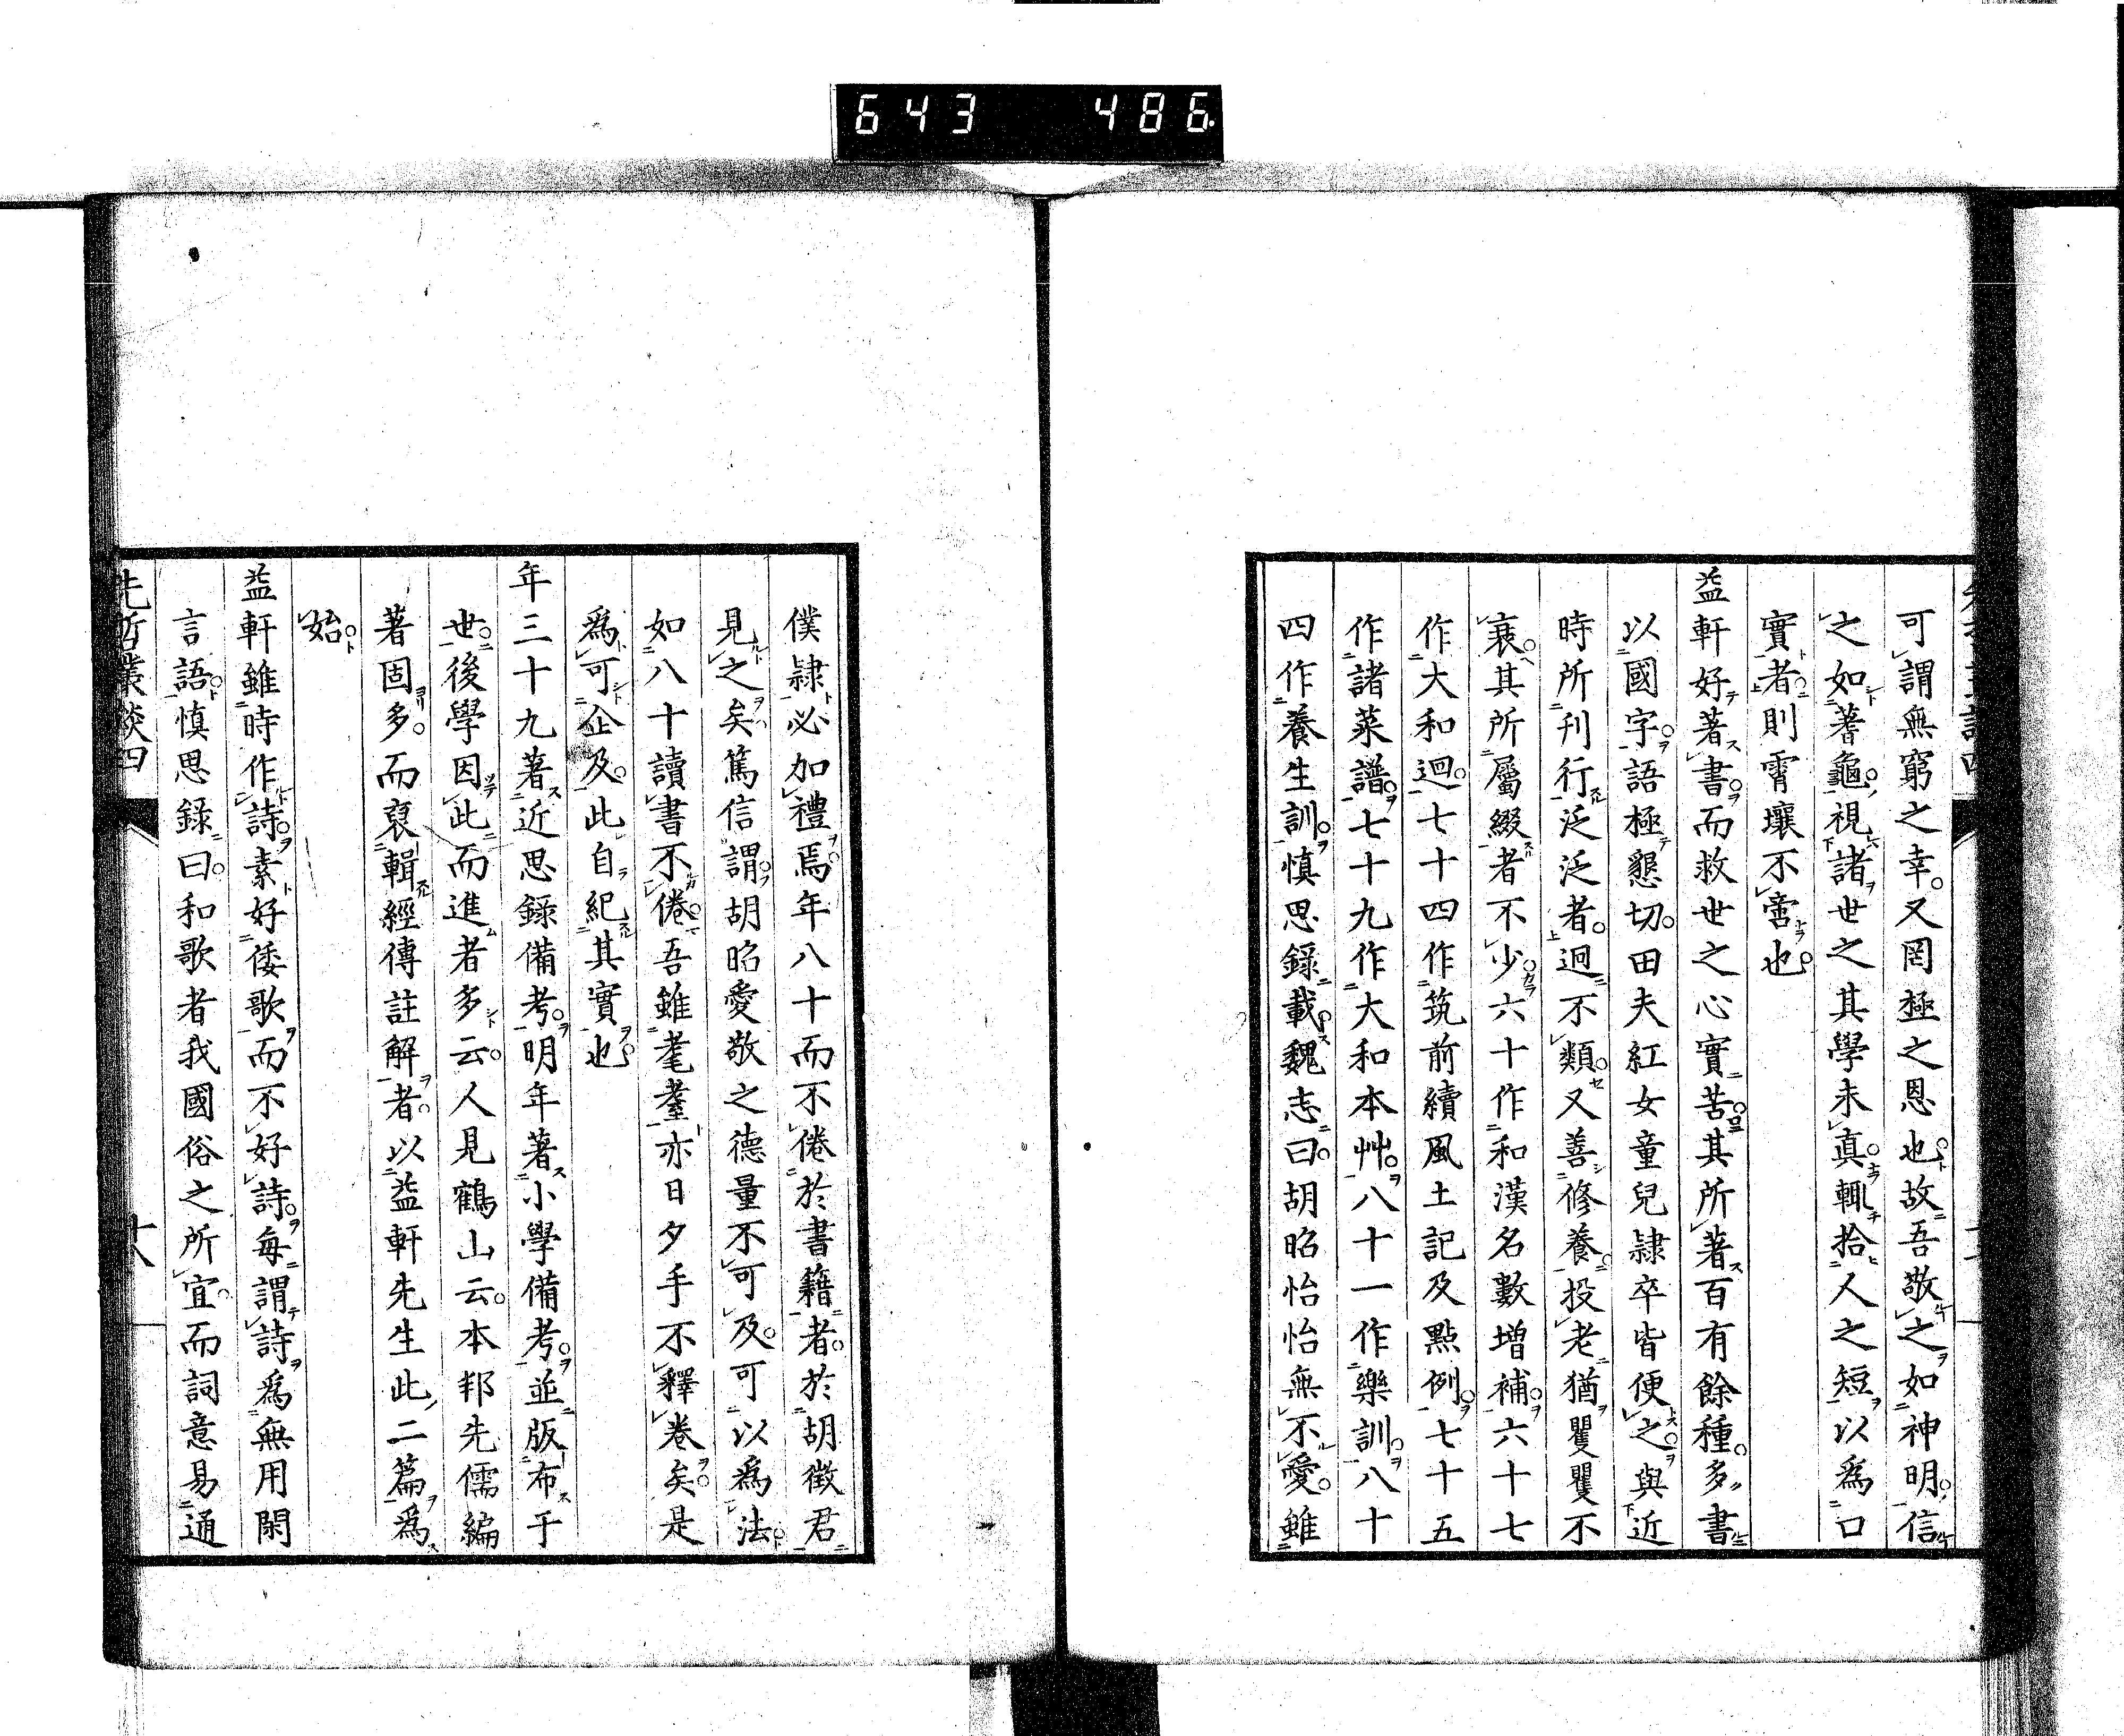 643 486
可謂無窮之幸。又罔極之恩也。故吾敬之如神明。信
之如蓍龜。視諸世之其學未真。輒拾人之短以為口
實者。則霄壤不啻也。
益軒好著書。而救世之心實苦。其所著百有餘種。多書
以國字。語極懇切。田夫紅女童兒隷卒皆便之。與近
時所刊行泛泛者。迥不類。又善修養。投老猶矍矍不
衰。其所屬綴者不少。六十作和漢名數増補。六十七
作大和迴。七十四作筑前續風土記及點例。七十五
作諸菜譜。七十九作大和本艸。八十一作樂訓。八十
四作養生訓。慎思錄載。魏志曰。胡昭怡怡無不愛。雖
僕隷必加禮焉。年八十而不倦於書籍者。於胡徵君
見之矣。篤信謂。胡昭愛敬之德量不可及。可以為法。
如八十讀書不倦。吾雖耄耋。亦日夕手不釋卷矣。是
為可企及。此自紀其實也。
年三十九著近思錄備考。明年著小學備考。並版布于
世。後學因此而進者多云。人見鶴山云。本邦先儒編
著固多。而裒輯經傳註解者。以益軒先生此二篇為
始。
益軒雖時作詩。素好倭歌而不好詩。毎謂詩為無用閑
言語。慎思錄曰。和歌者我國俗之所宜。而詞意易通
先哲叢談四
十八